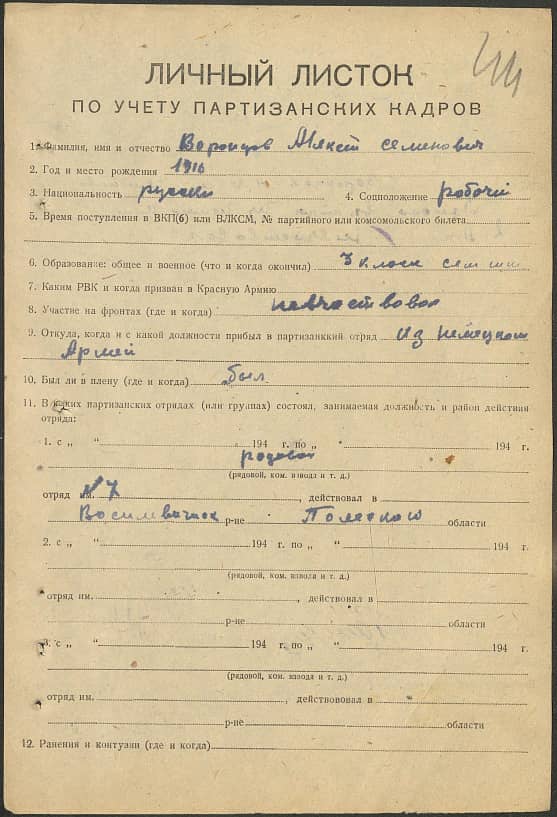 ЛИЧНЫЙ ЛИСТОК
ПО УЧЕТУ ПАРТИЗАНСКИХ КАДРОВ
1. Фамилия, имя и отчество Воронцов Алексей Семенович
2. Год и место рождения 1916
3. Национальность русски 4. Соцположение рабочий
5. Время поступления в ВКП(б) или ВЛКСМ, № партийного или комсомольского билета
6. Образование: общее и военное (что и когда окончил) 3 класс
7. Каким РВК и когда призван в Красную Армию
8. Участие на фронтах (где и когда) неучаствовал
9. Откуда, когда и с какой должности прибыл в партизанский отряд из немецкой
Армей
10. Был ли в плену (где и когда) был
11. В каких партизанских отрядах (или группах) состоял, занимаемая должность и район действия
отряда:
1. с „ “ 194 г. по „ “ 194 г.
рядовой
(рядовой, ком. взвода и т. д.)
отряд им. №7, действовал в
р-не Полеского области
2. с „ “ 194 г. по „ “ 194 г.
(рядовой, ком. взвода и т. д.)
отряд им., действовал в
р-не области
3. с „ “ 194 г. по „ “ 194 г.
(рядовой, ком. взвода и т. д.)
отряд им., действовал в
р-не области
12. Ранения и контузии (где и когда)